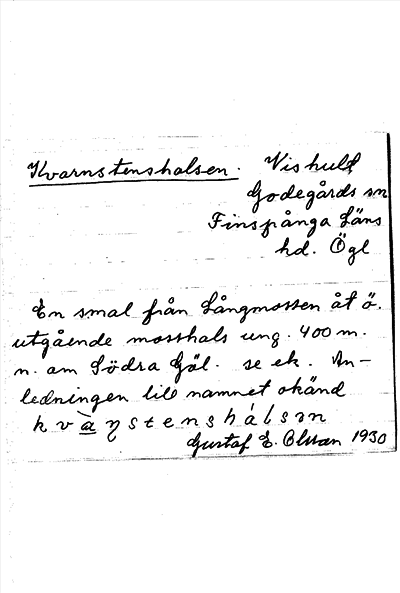 Kvarnstenshalsen. Vishult
Godegårds sn
Finspånga Läns
hd. Ögl
En smal från Långmossen åt ö.
utgående mosshals ung. 400 m.
n. om Södra Gäl. se ek. An-
ledningen till namnet okänd
kvàɳstenshálsən
Gustaf E. Olsson 1930